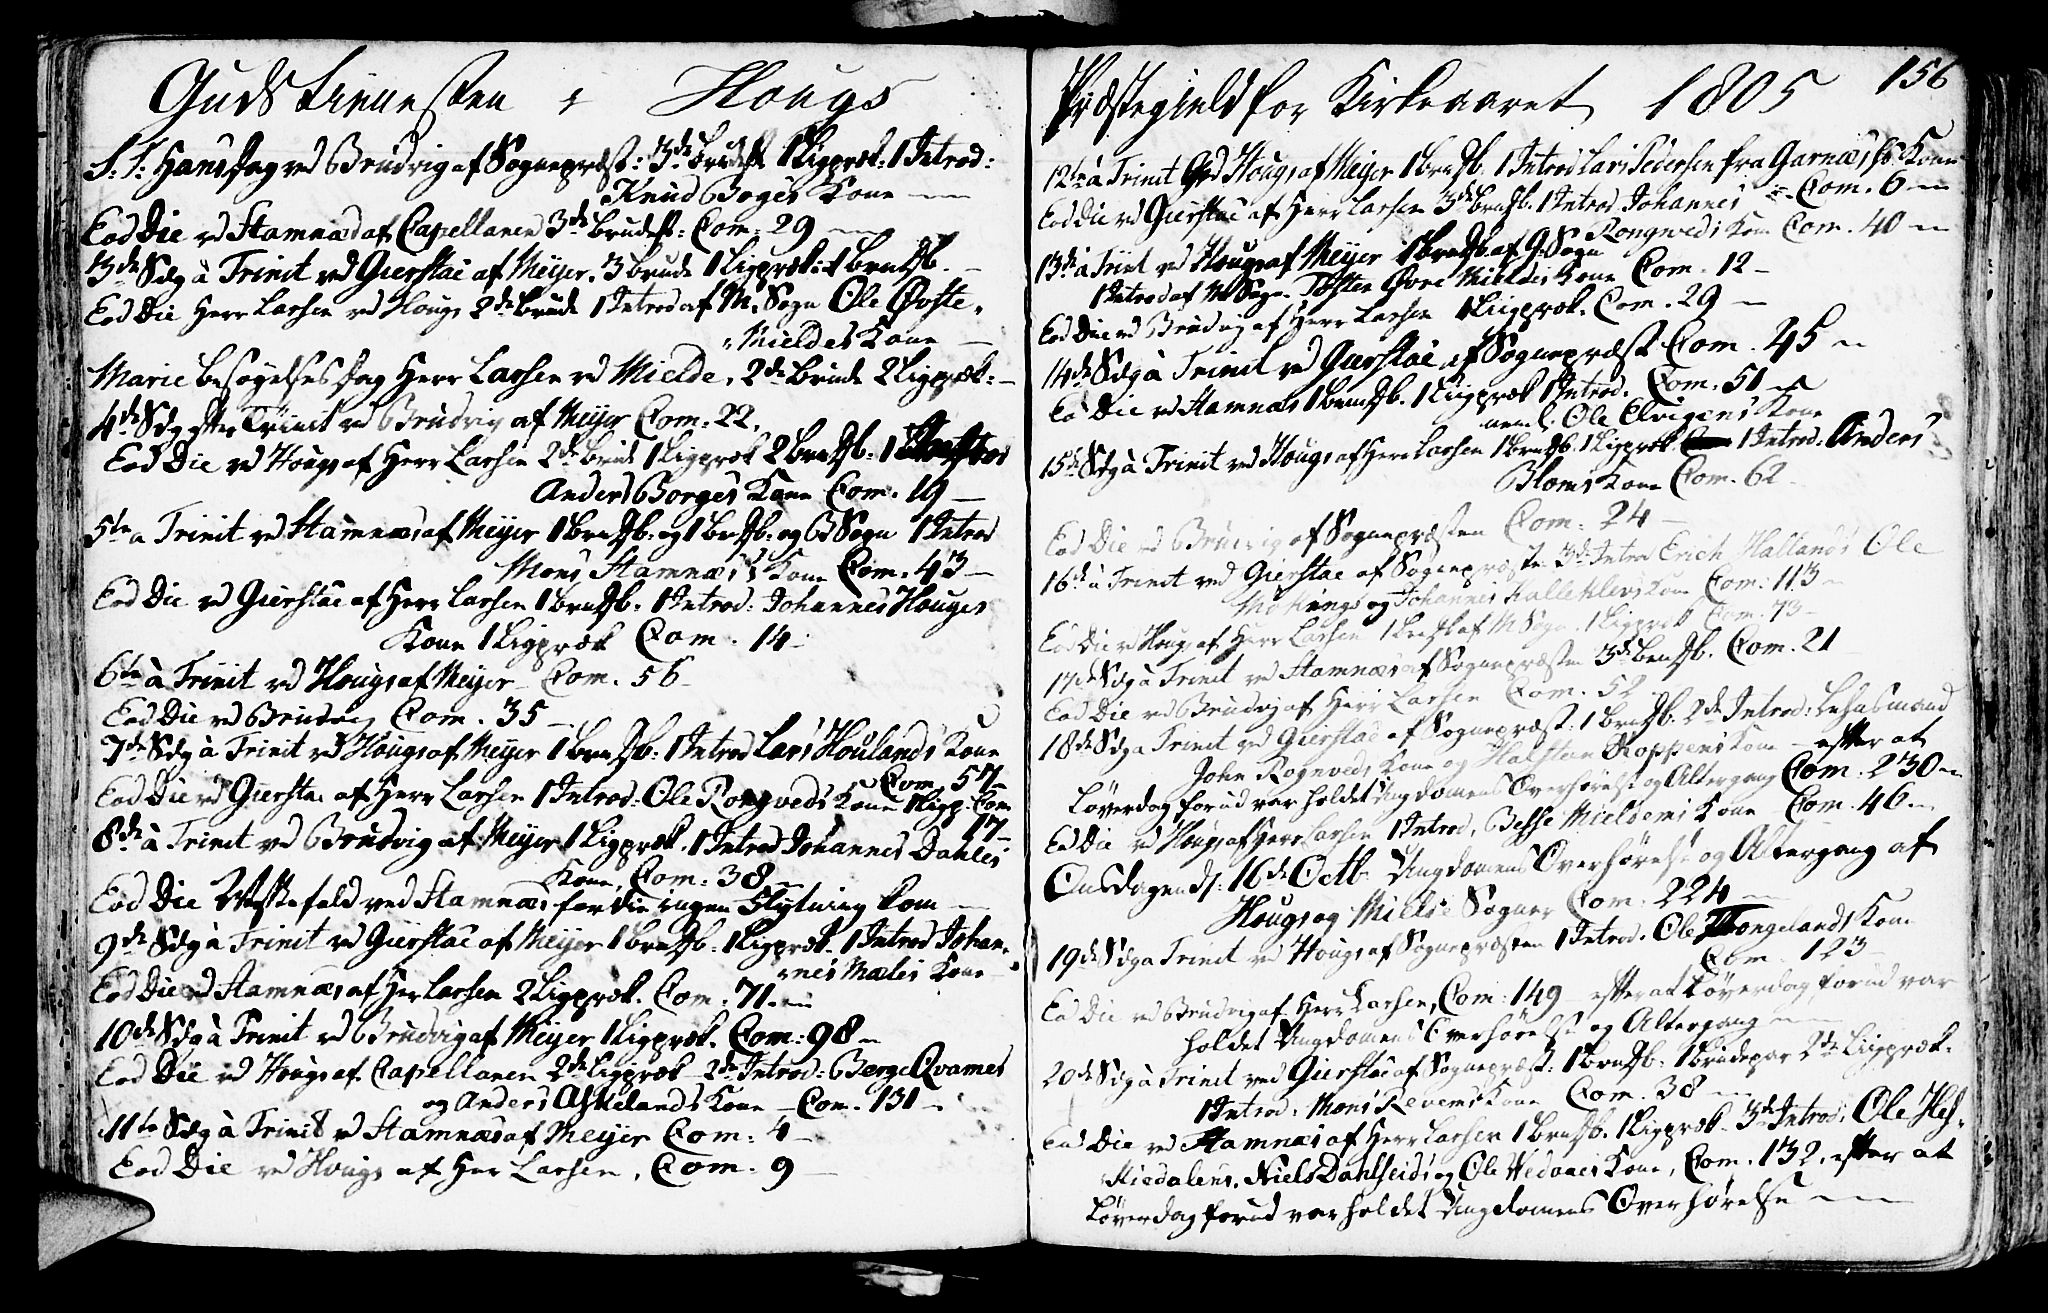 Guds tienesten i Hougs
S: J: Hansdag ved Brudvig af Sognepræst: 3de brudeflk 1 Ligpræk: 1 Introd:
Knud Boges Kone
Eod Die ved Stamnæs af Capellanen 3de brudeflk: Com: 29
3de Sdg à Trinit ved Gierstad af Meÿer. 3 brude 1 Ligpræk: 1 brudflb.
Eod Die Herr Larsen ved Hougs 2de brude 1 Introd af M. Sogn Ole Øvste
Mieldes Kone
Marie besøgelses dag Herr Larsen ved Mielde, 2de brude 2 Ligpræk:
4de Sdg efter Trinit ved Brudvig af Meÿer Com: 22.
Eod Die ved Hougs af Herr Larsen 2de brude 1 Ligpræk 2 brudflb: 1
Anders Borges Kone Com. 19
5te a Trinit ved Stamnæs af Meÿer 1 brudflb. og 1 brudflb. og B Sogn 1 Introd
Mons Stamnæs's Kone Com. 43
Eod Die ved Gierstad af Herr Larsen 1 brudflb. 1 Introd: Johannes Houges
Kone 1 Ligpræk Com. 14
6te à Trinit ved Hougs af Meÿer Com. 56
Eod Die ved Brudvig Com. 35
7de Sdg à Trinit ved Hougs af Meÿer 1 brudflb: 1 Introd Lars Houlands Kone
Com. 57
Eod Die ved Gierstad af Herr Larsen 1 Introd: Ole Rongveds Kone 1 Ligp: Com
17
8de à Trinit ved Brudvig af Meÿer 1 Ligpræk. 1 Introd Johannes Dahles
Kone, Com: 38
Eod Die Messefald ved Stamnæs fordie ingen Flytning kom
9de Sdg à Trinit ved Gierstad af Meÿer 1 brudflb: 1 Ligpræk. 1 Introd Johan-
nes Mæles Kone
Eod Die ved Stamnæs af Her Larsen 2 Ligpræk. Com. 71.
10de Sdg à Trinit ved Brudvig af Meÿer 1 Ligpræk. Com: 98
Eod Die ved Hougs af Capellanen 2de Ligpræk 2de Introd: Børge Qvames
og Anders Askelands Kone Com. 131
11te Sdg à Trinit ved Stamnæs af Meÿer Com: 4
Eod Die ved Hougs af Her Larsen, Com. 9
Præstegield for Kirkeaaret 1805 156
12te à Trinit ved Hougs af Meÿer 1 brudflb. 1 Introd Lars Pedersen fra Garnæs Kone
Com. 6
Eod Die ved Gierstad af Herr Larsen 3de brudflb. 1 Introd Johannes
Rongveds Kone Com. 40
13de à Trinit ved Hougs af Meÿer 1 brudflb af G. Sogn
1 Introd af M Sogn. Tosten Øvre Mieldes Kone Com. 12
Eod Die ved Brudvig af Herr Larsen 1 Ligpræk. Com. 29
14de Sdg à Trinit ved Gierstad af Sognepræst Com. 45
Eod Die ved Stamnæs 1 brudflb. 1 Ligpræk 1 Introd. Com. 51
neml. Ole Elvigens Kone
15de Sdg à Trinit ved Hougs af Herr Larsen 1 brudflb. 1 Ligpræk. 1 Introd. Anders
Bloms Kone Com. 62
Eod Die ved Brudvig af Sognepræsten Com: 24
16de à Trinit ved Gierstad af Sognepræsten 3de Introd Erich Hallands Ole
og Johannes Kallekleves Kone Com: 113
Eod Die ved Hougs af Herr Larsen 1 brudflb af M Sogn. 1 Ligpræk Com. 73
17de Sdg à Trinit ved Stamnæs af Sognepræsten 3de brudflb. Com. 21
Eod Die ved Brudvig af Herr Larsen Com. 52
18de Sdg a Trinit ved Gierstad af Sognepræst: 1 brudflb. 2de Introd:
John Rognveds Kone og Halsten Roppens Kone efter at
Løverdag forud var holdet Ungdomens Overhørelse og Altergang Com. 230
Eod Die ved Hougs af Herr Larsen 1 Introd. Besse Mieldems Kone Com. 46
Onsdagen d: 16de Octb. Ungdomens Overhørelse og Altergang af
Hougs og Mielde Sogner Com: 224
19de Sdg a Trinit ved Hougs af Sognepræsten 1 Introd. Ole Trongelands Kone
Com. 123
Eod Die ved Brudvig af Herr Larsen, Com: 149 efter at Løverdag forud var
holdet Ungdomens Overhørelse og Altergang
20de Sdg à Trinit ved Gierstad af Sognepræst: 1 brudflb: 1 brudepar 2de Ligpræk.
1 Introd: Mons Revems Kone Com. 38
Eod Die ved Stamnæs af Herr Larsen 1 brudflb. 1 Ligpræk. 3de Introd: Ole Hes-
hiedalens, Niels Dahlseids og Ole Vedaaes Kone, Com. 132. efter at
Løverdag forud var holdet Ungdomens Overhørelse